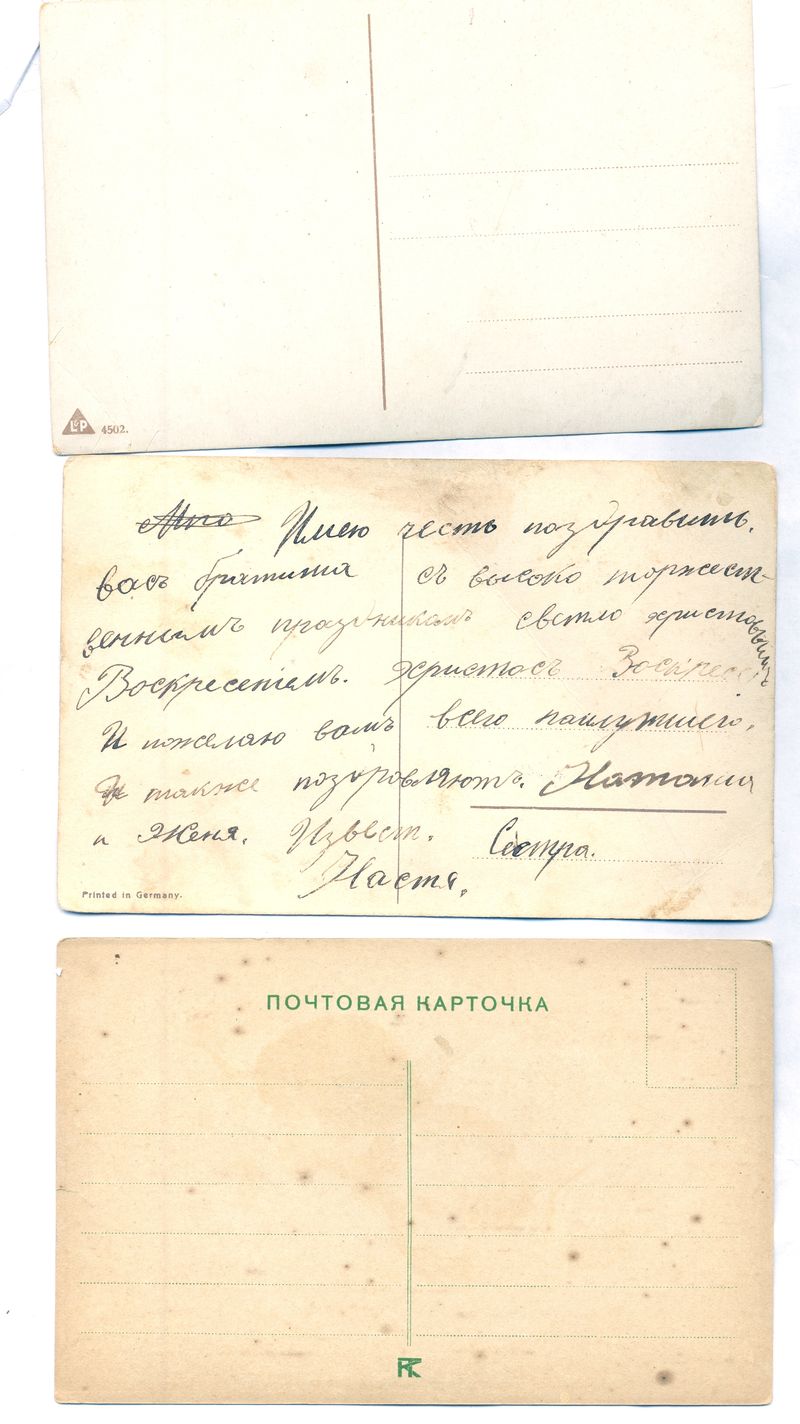 L&P 4502.
Имею честь поздравить.
васъ братиша съ высоко торжест-
веннымъ праздникамъ светло христовымъ
Воскресениемъ. христосъ Воскресе
И пожелаю вамъ всего наилутшего,
И также поздровляютъ. Наталия
и Женя. Извест. Сестра.
Настя.
Printed in Germany.
ПОЧТОВАЯ КАРТОЧКА